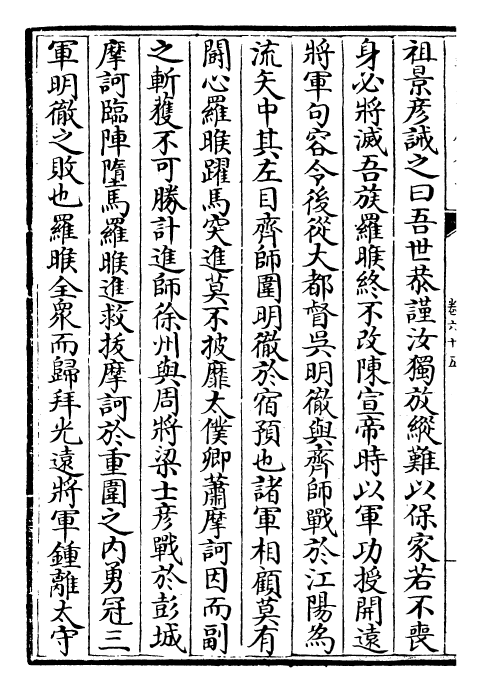 祖景彦誡之曰吾世恭謹汝獨放縱難以保家若不喪
身必將滅吾族羅睺終不改陳宣帝時以軍功授開遠
將軍句容令後從大都督吳明徹與齊師戰於江陽為
流矢中其左目齊師圍明徹於宿預也諸軍相顧莫有
鬭心羅睺躍馬突進莫不披靡太僕卿蕭摩訶因而副
之斬獲不可勝計進師徐州與周將梁士彦戰於彭城
摩訶臨陣墮馬羅睺進救拔摩訶於重圍之内勇冠三
軍明徹之敗也羅睺全衆而歸拜光遠將軍鍾離太守
卷六十五